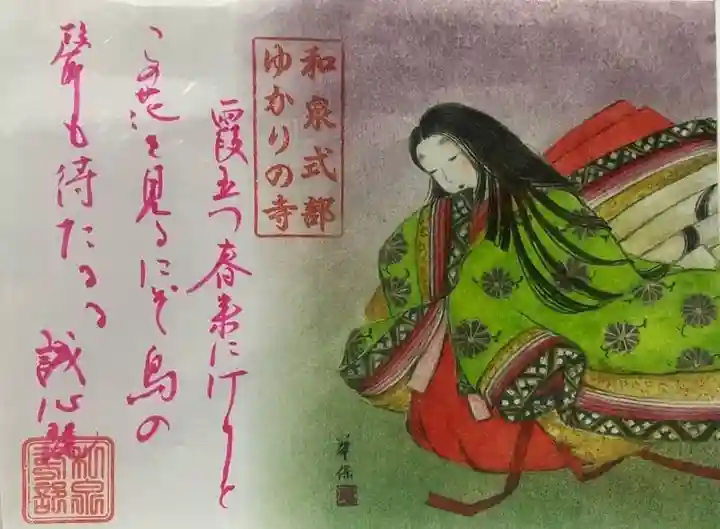 和泉式部
ゆかりの寺
霞立つ春来にけりと
この花を見るにぞ鳥の
聲も待たるる
誠心院
和泉
式部
華保